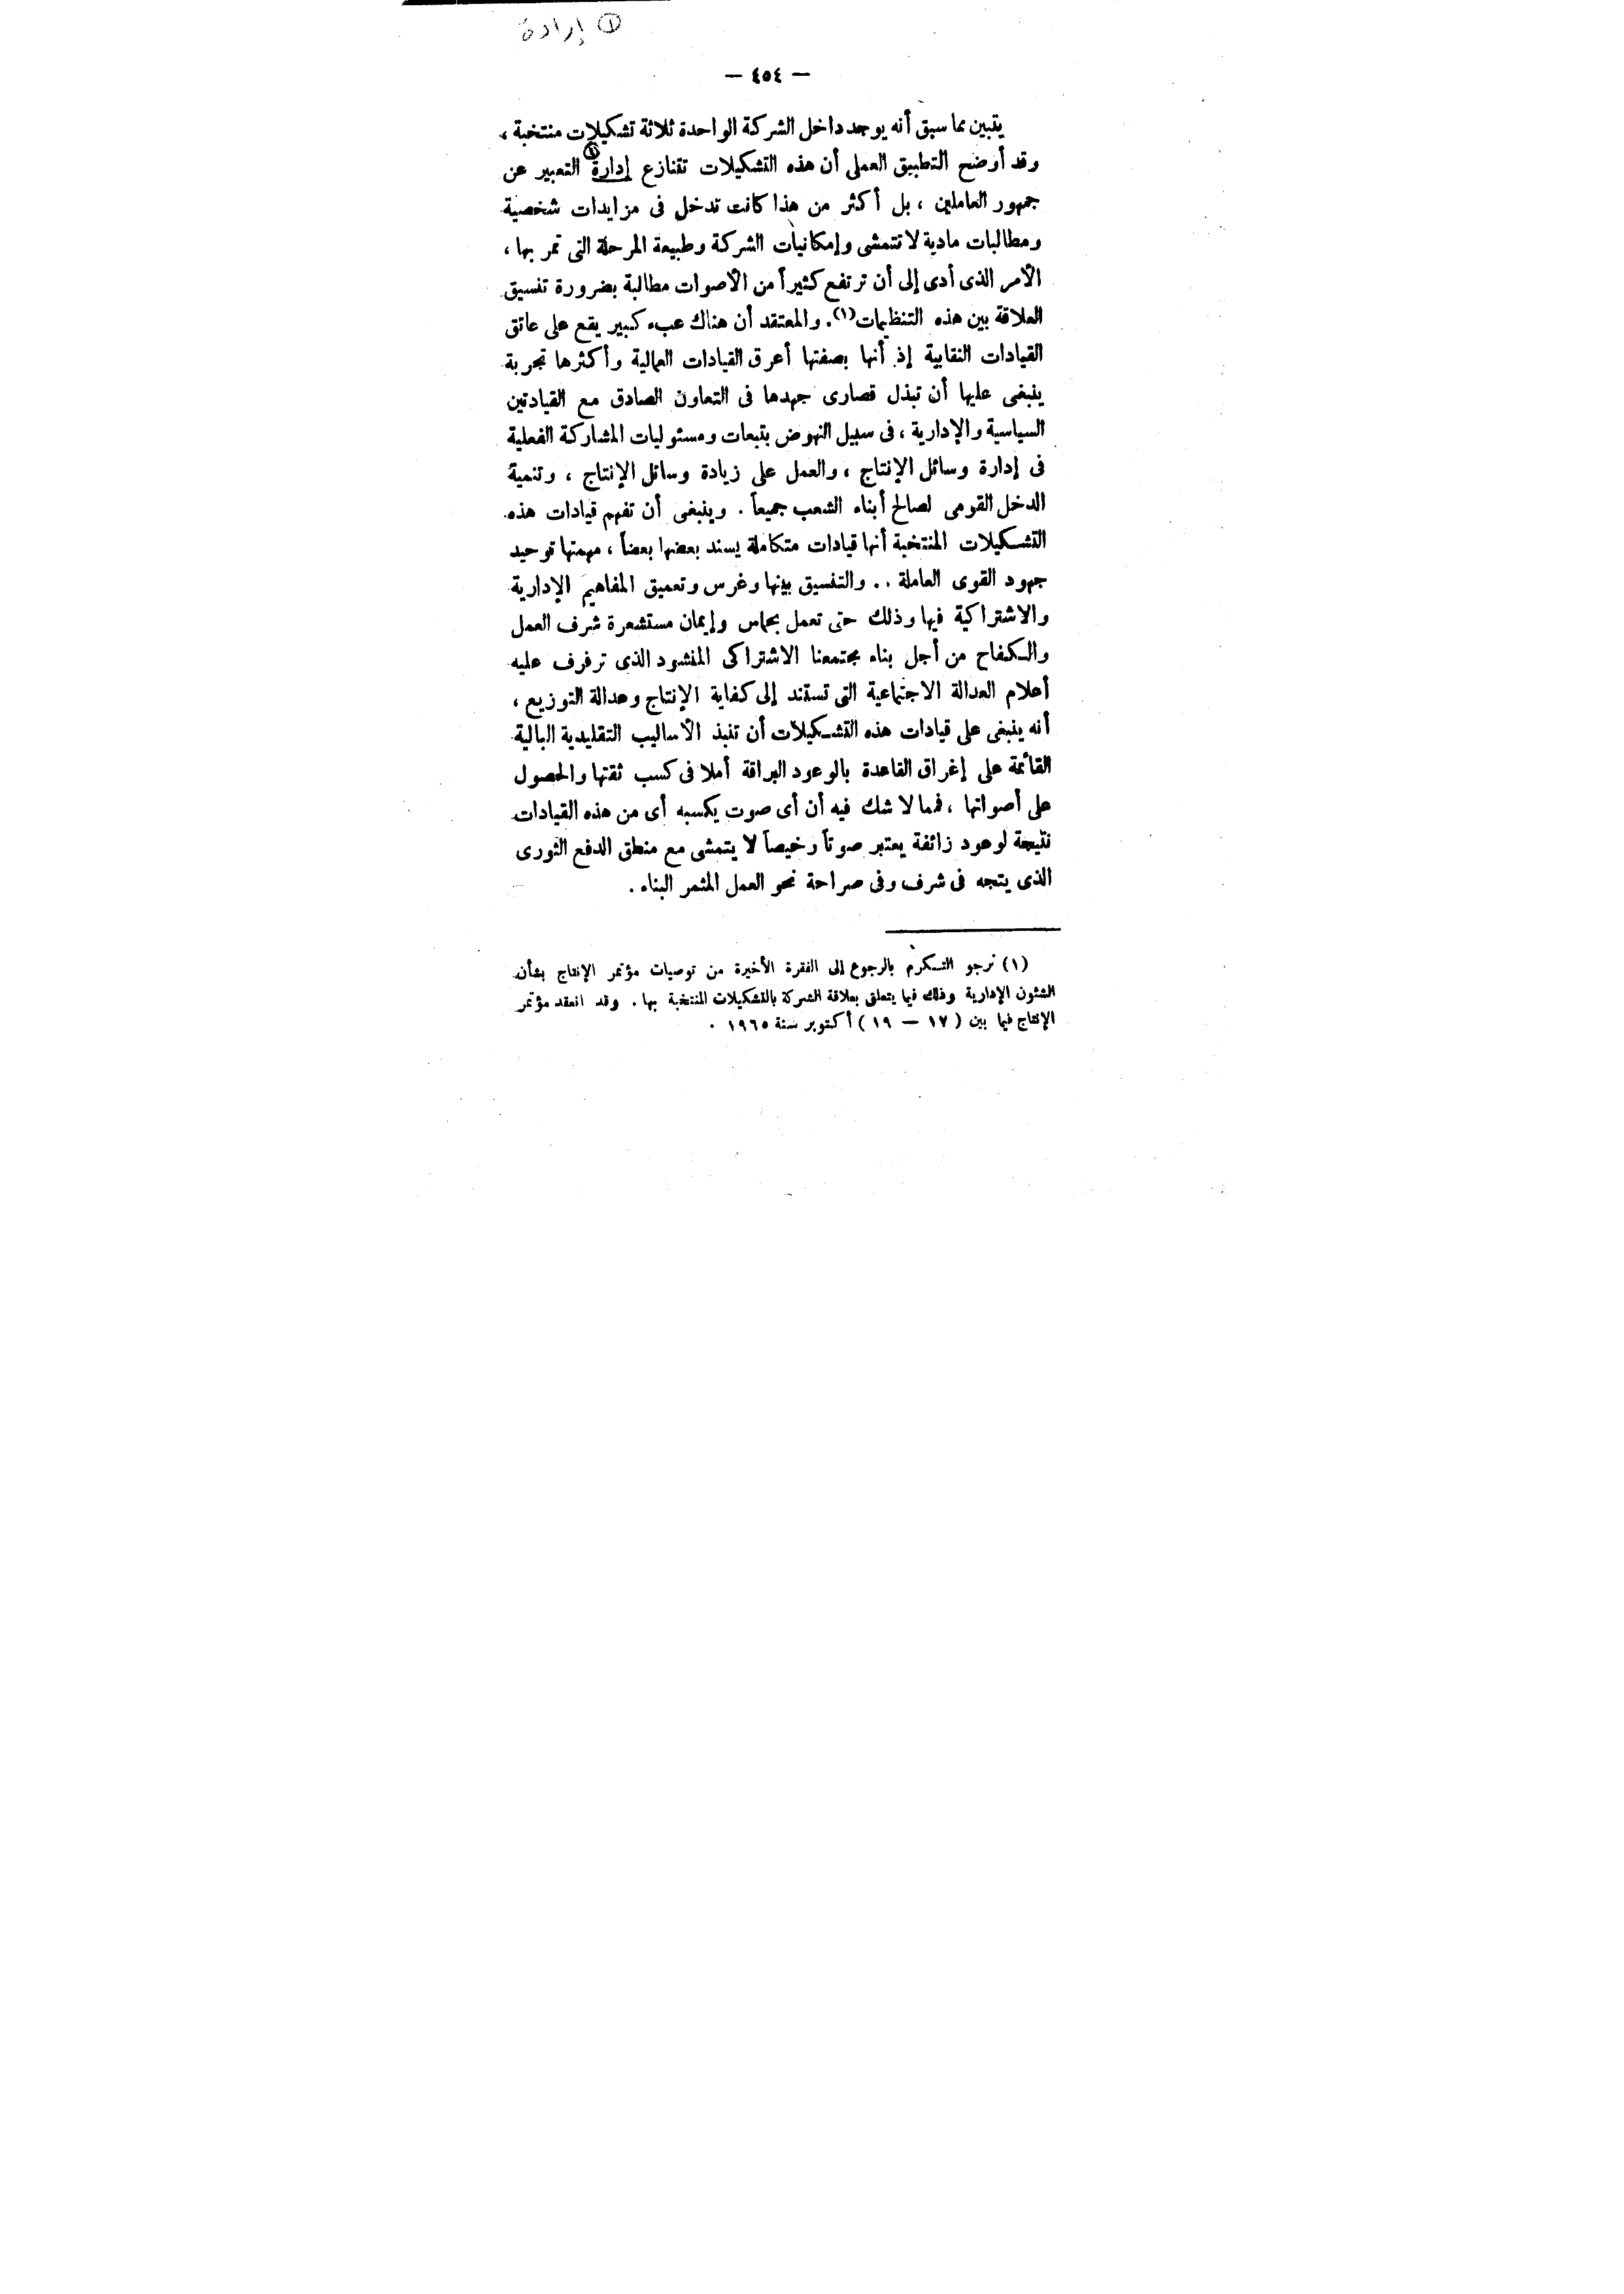 ① إرادة
— ٤٥٤ —
يتبين مما سبق أنه يوجد داخل الشركة الواحدة ثلاثة تشكيلات منتخبة ،
وقد أوضح التطبيق العملى أن هذه التشكيلات تتنازع إدارة ① التعبير عن
جمهور العاملين ، بل أكثر من هذا كانت تدخل فى مزايدات شخصية
ومطالبات مادية لا تتمشى وإمكانيات الشركة وطبيعة المرحلة التى تمر بها ،
الأمر الذى أدى إلى أن ترتفع كثيراً من الأصوات مطالبة بضرورة تنسيق
العلاقة بين هذه التنظيمات(١). والمعتقد أن هناك عبء كبير يقع على عاتق
القيادات النقابية إذ أنها بصفتها أعرق القيادات العمالية وأكثرها تجربة
ينبغى عليها أن تبذل قصارى جهدها فى التعاون الصادق مع القيادتين
السياسية والإدارية ، فى سبيل النهوض بتبعات ومسئوليات المشاركة الفعلية
فى إدارة وسائل الإنتاج ، والعمل على زيادة وسائل الإنتاج ، وتنمية
الدخل القومى لصالح أبناء الشعب جميعاً . وينبغى أن تفهم قيادات هذه
التشكيلات المنتخبة أنها قيادات متكاملة يسند بعضها بعضاً ، مهمتها توحيد
جهود القوى العاملة .. والتنسيق بينها وغرس وتعميق المفاهيم الإدارية
والاشتراكية فيها وذلك حتى تعمل بحماس وإيمان مستشعرة شرف العمل
والكفاح من أجل بناء مجتمعنا الاشتراكى المنشود الذى ترفرف عليه
أعلام العدالة الاجتماعية التى تستند إلى كفاية الإنتاج وعدالة التوزيع ،
أنه ينبغى على قيادات هذه التشكيلات أن تنبذ الأساليب التقليدية البالية
القائمة على إغراق القاعدة بالوعود البراقة أملا فى كسب ثقتها والحصول
على أصواتها ، فمما لا شك فيه أن أى صوت يكسبه أى من هذه القيادات
نتيجة لوعود زائفة يعتبر صوتاً رخيصاً لا يتمشى مع منطق الدفع الثورى
الذى يتجه فى شرف وفى صراحة نحو العمل المثمر البناء .
(١) نرجو التكرم بالرجوع إلى الفقرة الأخيرة من توصيات مؤتمر الإنتاج بشأن
الشئون الإدارية وذلك فيما يتعلق بعلاقة الشركة بالتشكيلات المنتخبة بها . وقد انعقد مؤتمر
الإنتاج فيما بين ( ١٧ — ١٩ ) أكتوبر سنة ١٩٦٥ .